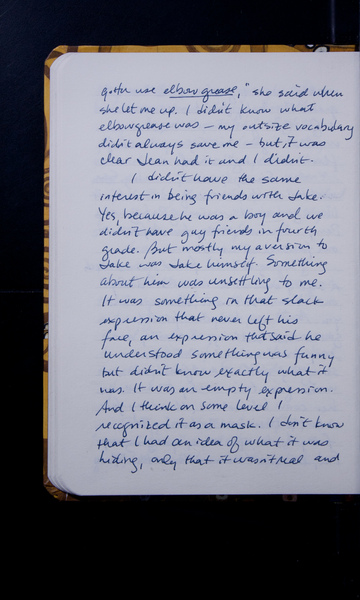 gotta use elbow grease," she said when
she let me up. I didn't know what
elbowgrease was – my outsize vocabulary
didn't always save me – but it was
clear Jean had it and I didn't.
I didn't have the same
interest in being friends with Jake.
Yes, because he was a boy and we
didn't have guy friends in fourth
grade. But mostly my aversion to
Jake was Jake himself. Something
about him was unsettling to me.
It was something in that slack
expression that never left his
face, an expression that said he
understood something was funny
but didn't know exactly what it
was. It was an empty expression.
And I think on some level I
recognized it as a mask. I don't know
that I had an idea of what it was
hiding, only that it wasn't real and